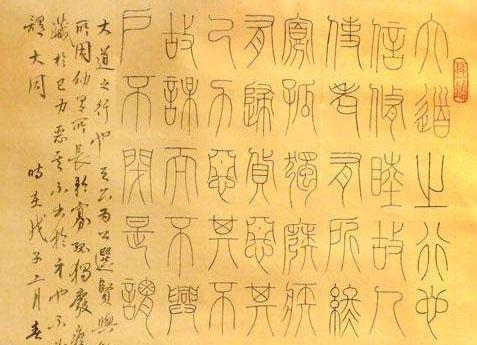 大道之行也
信修睦故人
使老有所終
寡孤獨廢疾
有歸貨惡其
己力惡其不
故謀而不興
戶不閉是謂
大道之行也天下為公選賢與
所用幼有所長矜寡孤獨廢疾
藏於己力惡其不出於身也不
謂大同 時在戊子二月春